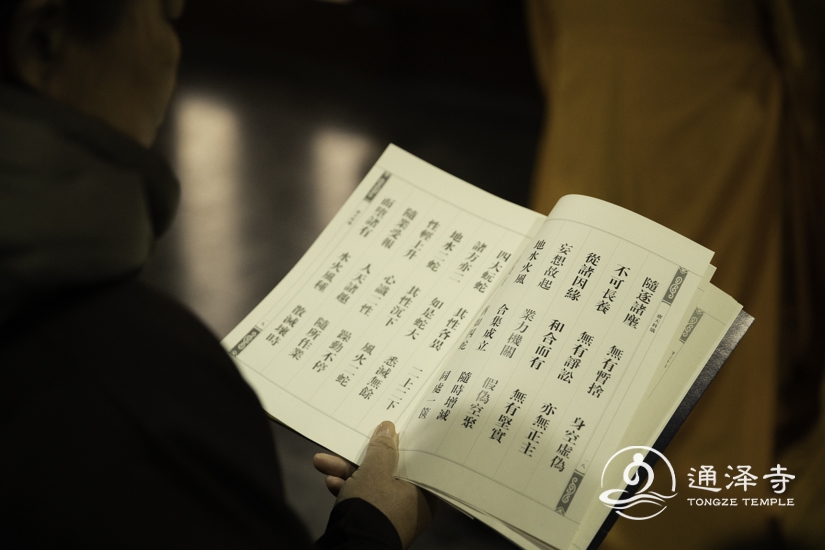 隨逐諸塵 無有暫捨 身空虛偽
不可長養 無有諍訟 亦無正主
從諸因緣 和合而有 無有堅實
妄想故起 業力機關 假偽空聚
地水火風 合集成立 隨時增減
同處一篋
四大蚖蛇 其性各異 二上二下
諸方亦二 如是蛇大 悉滅無餘
地水二蛇 其性沉下 風火二蛇
性輕上升 心識二性 躁動不停
隨業受報 人天諸趣 隨所作業
而墮諸有 水火風種 散滅壞時
通泽寺
TONGZE TEMPLE